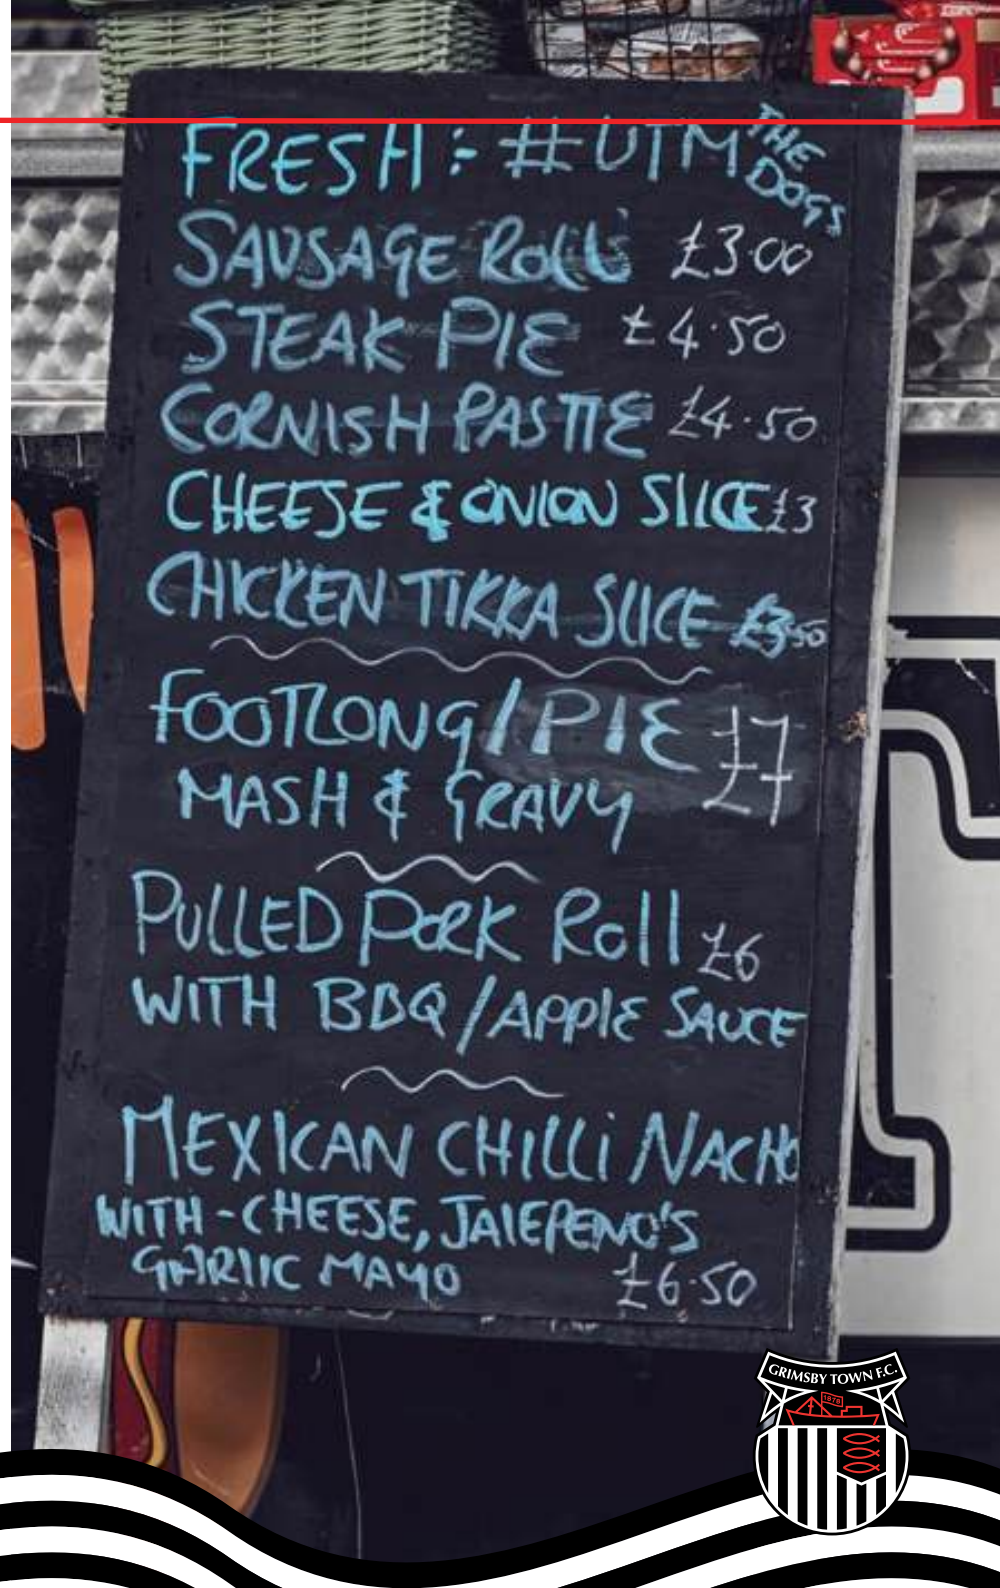 FRESH: #UTM THE DOGS
SAUSAGE Rolls £3.00
STEAK PIE £4.50
CORNISH PASTIE £4.50
CHEESE & ONION SLICE £3
CHICKEN TIKKA SLICE £3.50
FOOTLONG/PIE £7
MASH & GRAVY
PULLED PORK Roll £6
WITH BBQ/APPLE SAUCE
MEXICAN CHILLi NACHO
WITH-CHEESE, JALEPENO'S
GARLIC MAYO £6.50
GRIMSBY TOWN F.C.
1878